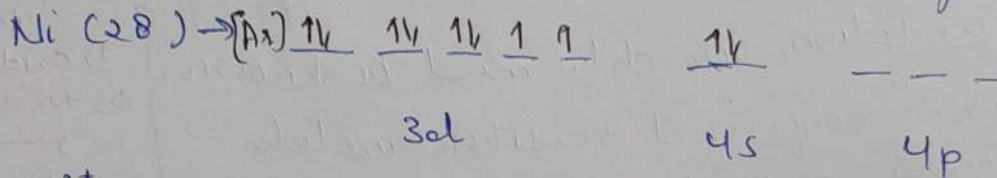 Ni (28) → [Ar] 1l 1l 1l 1 1 1l _ _ _
3d 4s 4p